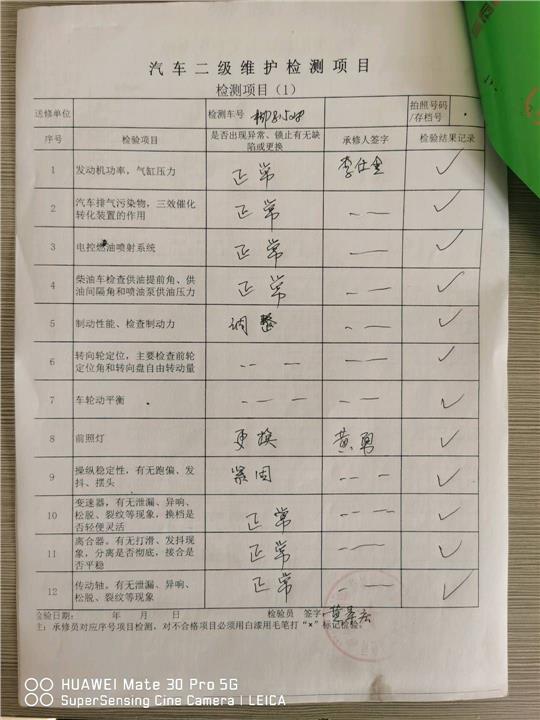 汽车二级维护检测项目
检测项目（1）
送修单位 检测车号 拍照号码/存档号
序号 检验项目 是否出现异常、锁止有无缺陷或更换 承修人签字 检验结果记录
1 发动机功率，气缸压力 正常 李仕金 ✓
2 汽车排气污染物，三效催化转化装置的作用 正常 -- ✓
3 电控燃油喷射系统 正常 -- ✓
4 柴油车检查供油提前角、供油间隔角和喷油泵供油压力 正常 -- ✓
5 制动性能、检查制动力 调整 -- ✓
6 转向轮定位，主要检查前轮定位角和转向盘自由转动量 -- -- ✓
7 车轮动平衡 -- -- ✓
8 前照灯 更换 黄勇 ✓
9 操纵稳定性，有无跑偏、发抖、摆头 紧固 -- ✓
10 变速器，有无泄漏、异响、松脱、裂纹等现象，换档是否轻便灵活 正常 --- ✓
11 离合器。有无打滑、发抖现象，分离是否彻底，接合是否平稳 正常 -- ✓
12 传动轴。有无泄漏、异响、松脱、裂纹等现象 正常 -- ✓
检验日期： 年 月 日 检验员 签字：黄
主：承修员对应序号项目检测，对不合格项目必须用白漆用毛笔打“×”标记检验。
HUAWEI Mate 30 Pro 5G
SuperSensing Cine Camera | LEICA